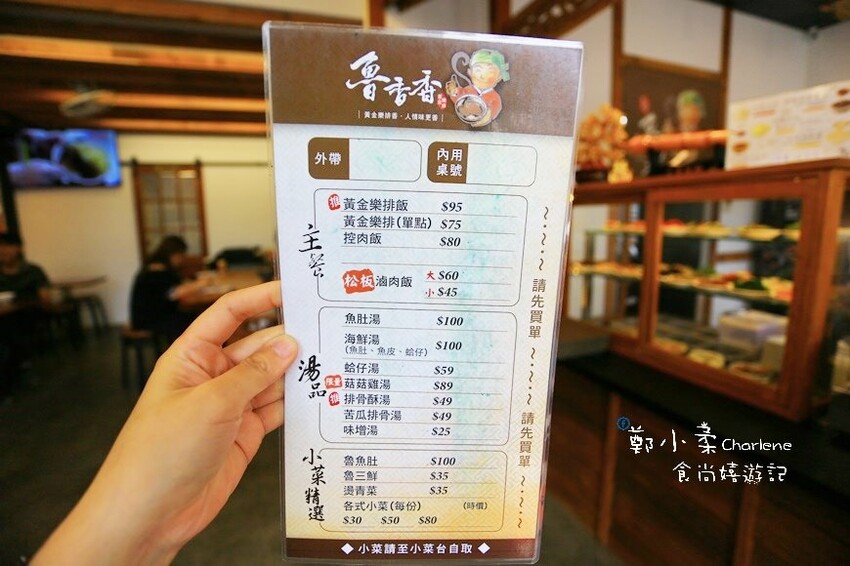 魯香香
黃金樂排香・人情味更香
外帶
內用
桌號
主餐
推 黃金樂排飯 $95
黃金樂排(單點) $75
控肉飯 $80
松板滷肉飯 大 $60
小 $45
湯品
魚肚湯 $100
海鮮湯 $100
(魚肚、魚皮、蛤仔)
蛤仔湯 $59
限量 菇菇雞湯 $89
推 排骨酥湯 $49
苦瓜排骨湯 $49
味增湯 $25
小菜精選
魯魚肚 $100
魯三鮮 $35
燙青菜 $35
各式小菜(每份) (時價)
$30 $50 $80
～・～・～ 請先買單 ～・～・～ 請先買單 ～・～・～
◆ 小菜請至小菜台自取 ◆
鄭小柔Charlene
食尚嬉遊記